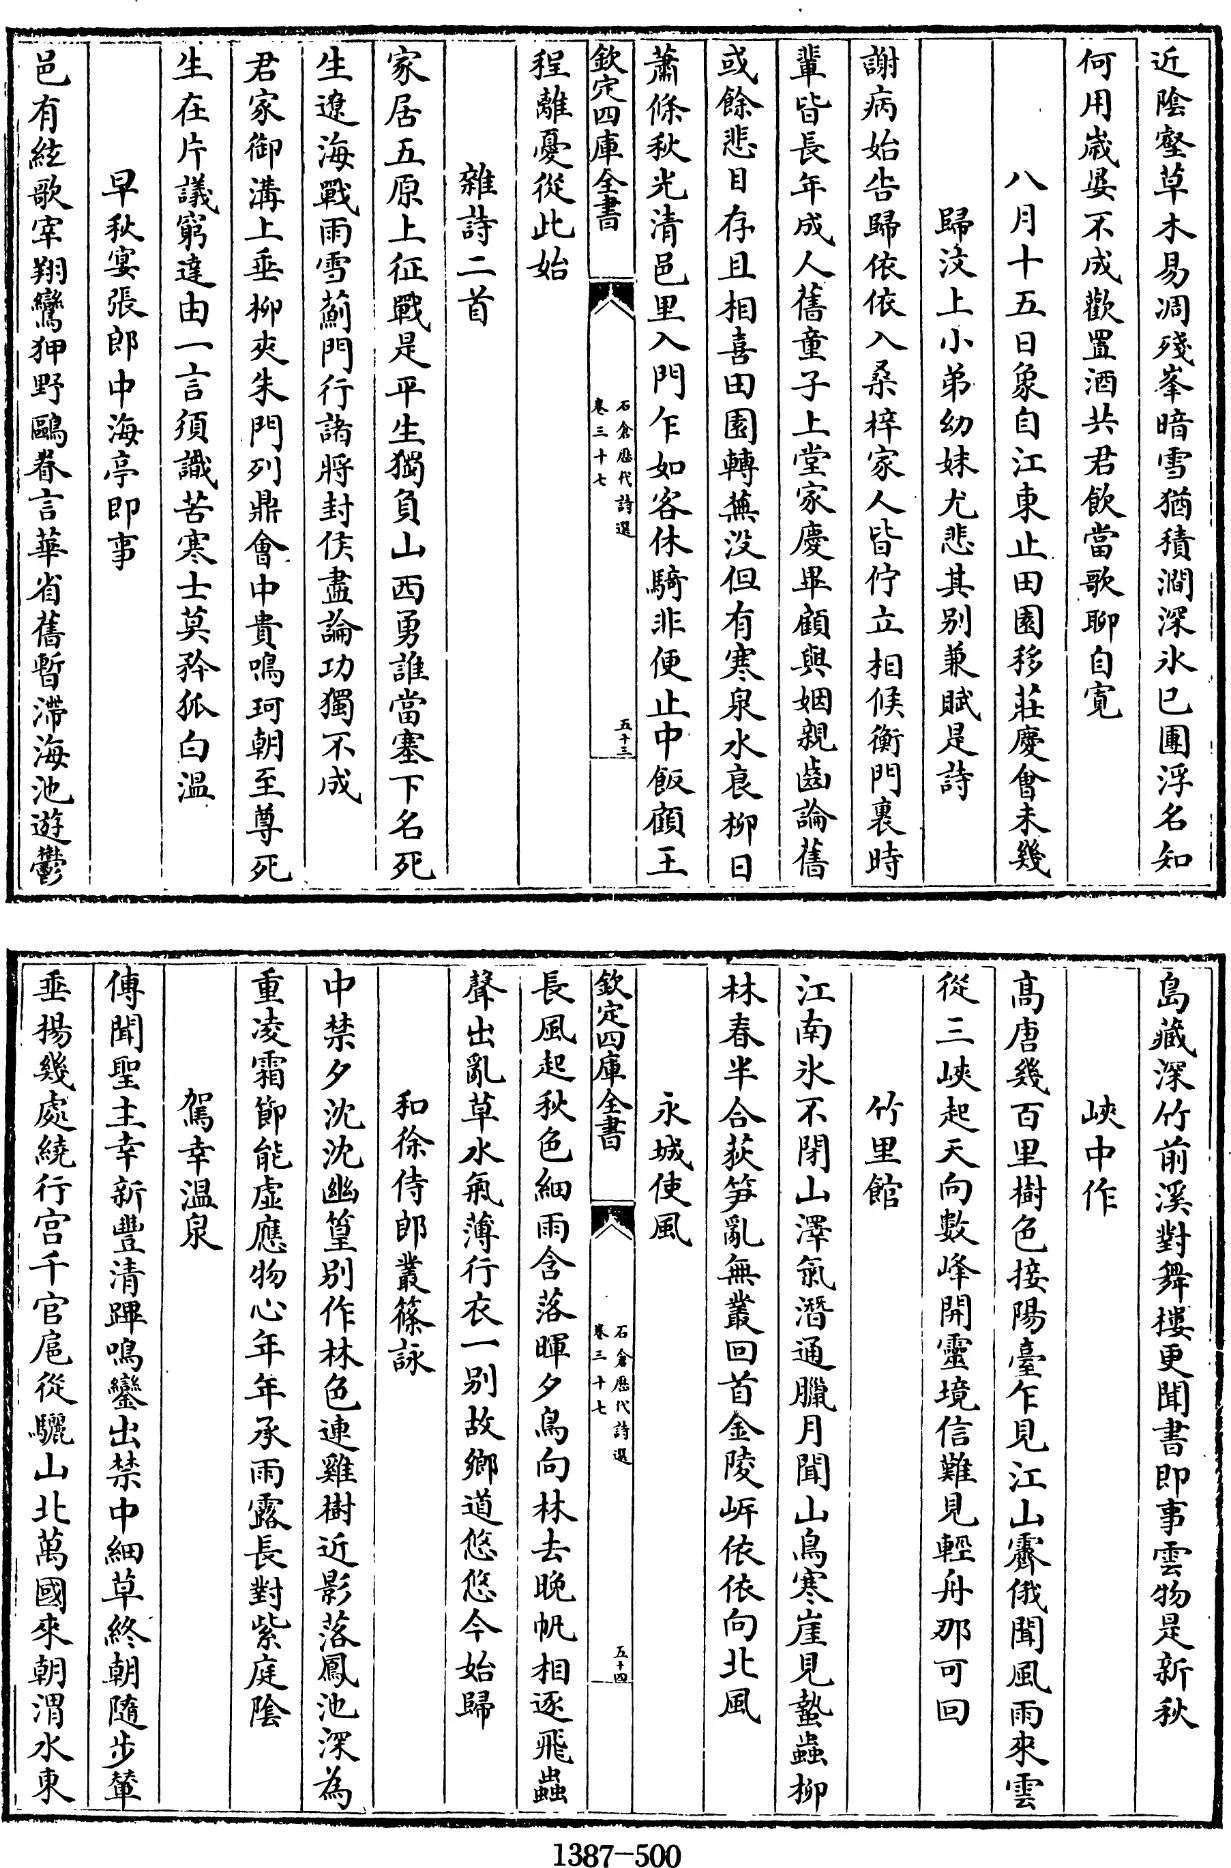 近陰壑草木易凋殘峯暗雪猶積澗深氷已團浮名知
何用嵗晏不成歡置酒共君飲當歌聊自寛
八月十五日象自江東止田園移莊慶會未幾
歸汶上小弟幼妹尤悲其别兼賦是詩
謝病始告歸依依入桑梓家人皆佇立相候衡門裏時
輩皆長年成人舊童子上堂家慶畢顧與姻親齒論舊
或餘悲目存且相喜田園轉蕪没但有寒泉水衰柳日
蕭條秋光清邑里入門乍如客休騎非便止中飯顧王
欽定四庫全書
石倉歴代詩選
卷三十七
五十三
程離憂從此始
雜詩二首
家居五原上征戰是平生獨負山西勇誰當塞下名死
生遼海戰雨雪薊門行諸將封侯盡論功獨不成
君家御溝上垂柳夾朱門列鼎會中貴鳴珂朝至尊死
生在片議窮達由一言須識苦寒士莫矜狐白温
早秋宴張郎中海亭即事
邑有絃歌宰翔鸞狎野鷗眷言華省舊暫滯海池遊鬱
島藏深竹前溪對舞樓更聞書即事雲物是新秋
峽中作
髙唐幾百里樹色接陽臺乍見江山霽俄聞風雨來雲
從三峽起天向數峰開靈境信難見輕舟那可回
竹里館
江南氷不閉山澤氣潛通臘月聞山鳥寒崖見蟄蟲柳
林春半合荻笋亂無叢回首金陵岍依依向北風
永城使風
欽定四庫全書
石倉歴代詩選
卷三十七
五十四
長風起秋色細雨含落暉夕鳥向林去晚帆相逐飛蟲
聲出亂草水氣薄行衣一别故鄉道悠悠今始歸
和徐侍郎叢篠詠
中禁夕沈沈幽篁别作林色連雞樹近影落鳳池深為
重凌霜節能虚應物心年年承雨露長對紫庭陰
駕幸温泉
傳聞聖主幸新豐清蹕鳴鑾出禁中細草終朝隨步輦
垂楊幾處繞行宫千官扈從驪山北萬國來朝渭水東
1387-500